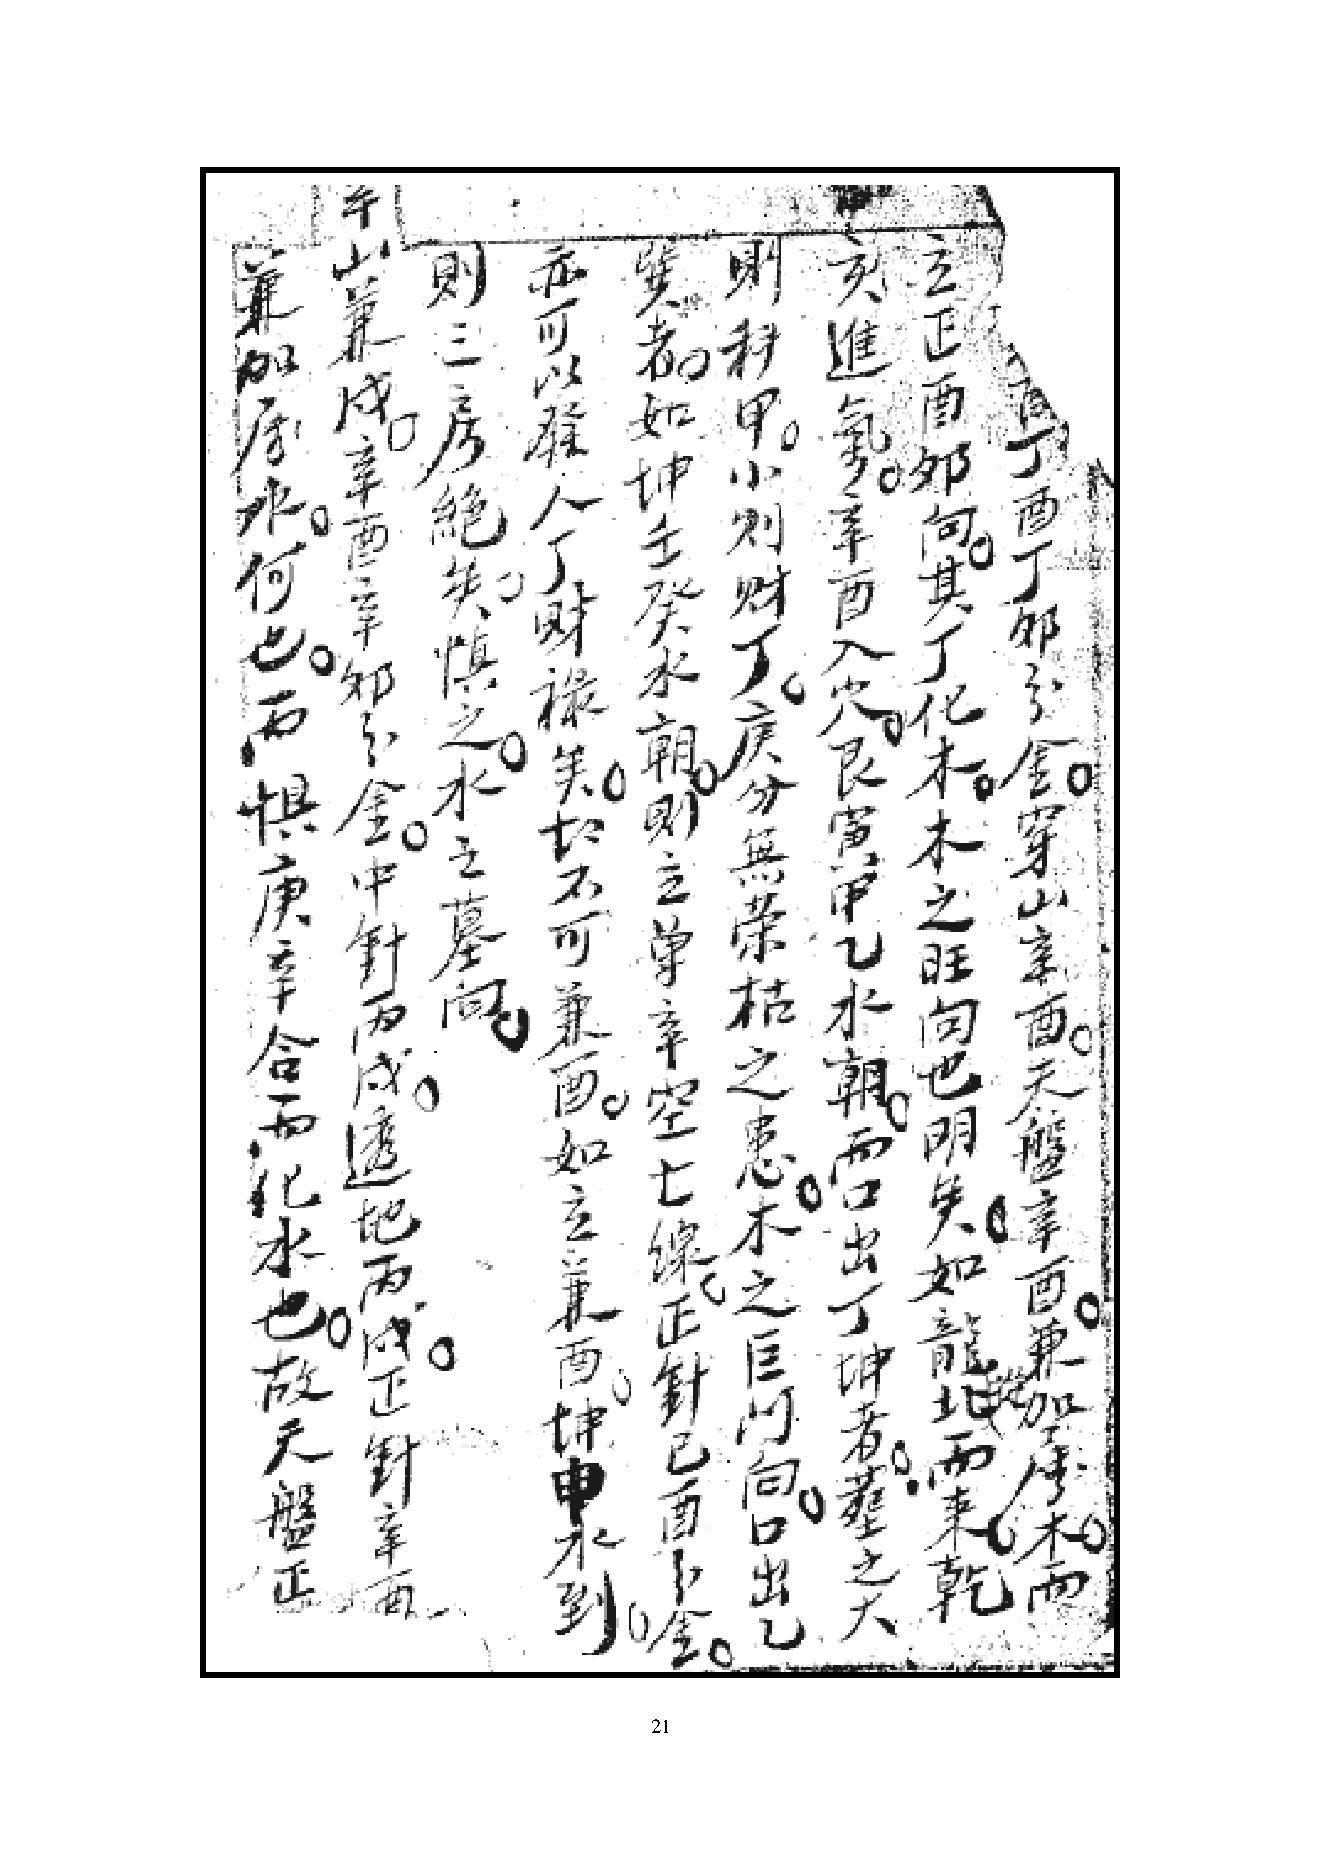 酉丁酉丁卯分金。穿山辛酉。天盤辛酉。兼加庚木。而
立正酉卯向。其丁化木。木之旺向也明矣。如龍北而来。乾
亥進氣。辛酉入穴。艮寅甲乙水朝。而口出丁坤者。塟之大
則科甲。小則财丁。庚分無荣枯之患。木之巨门向。口出乙
巽者。如坤壬癸水朝。則立单辛空七線。正針己酉卜金。
亦可以發人丁財禄矣。切不可兼酉。如立兼酉。坤申水到
則三房絶矣。慎之。水立墓向。
辛山兼戌。辛酉辛卯分金。中針丙戌。透地丙戌。正針辛酉
兼加房水。何也。而惧庚辛合而化水也。故天盤正
21